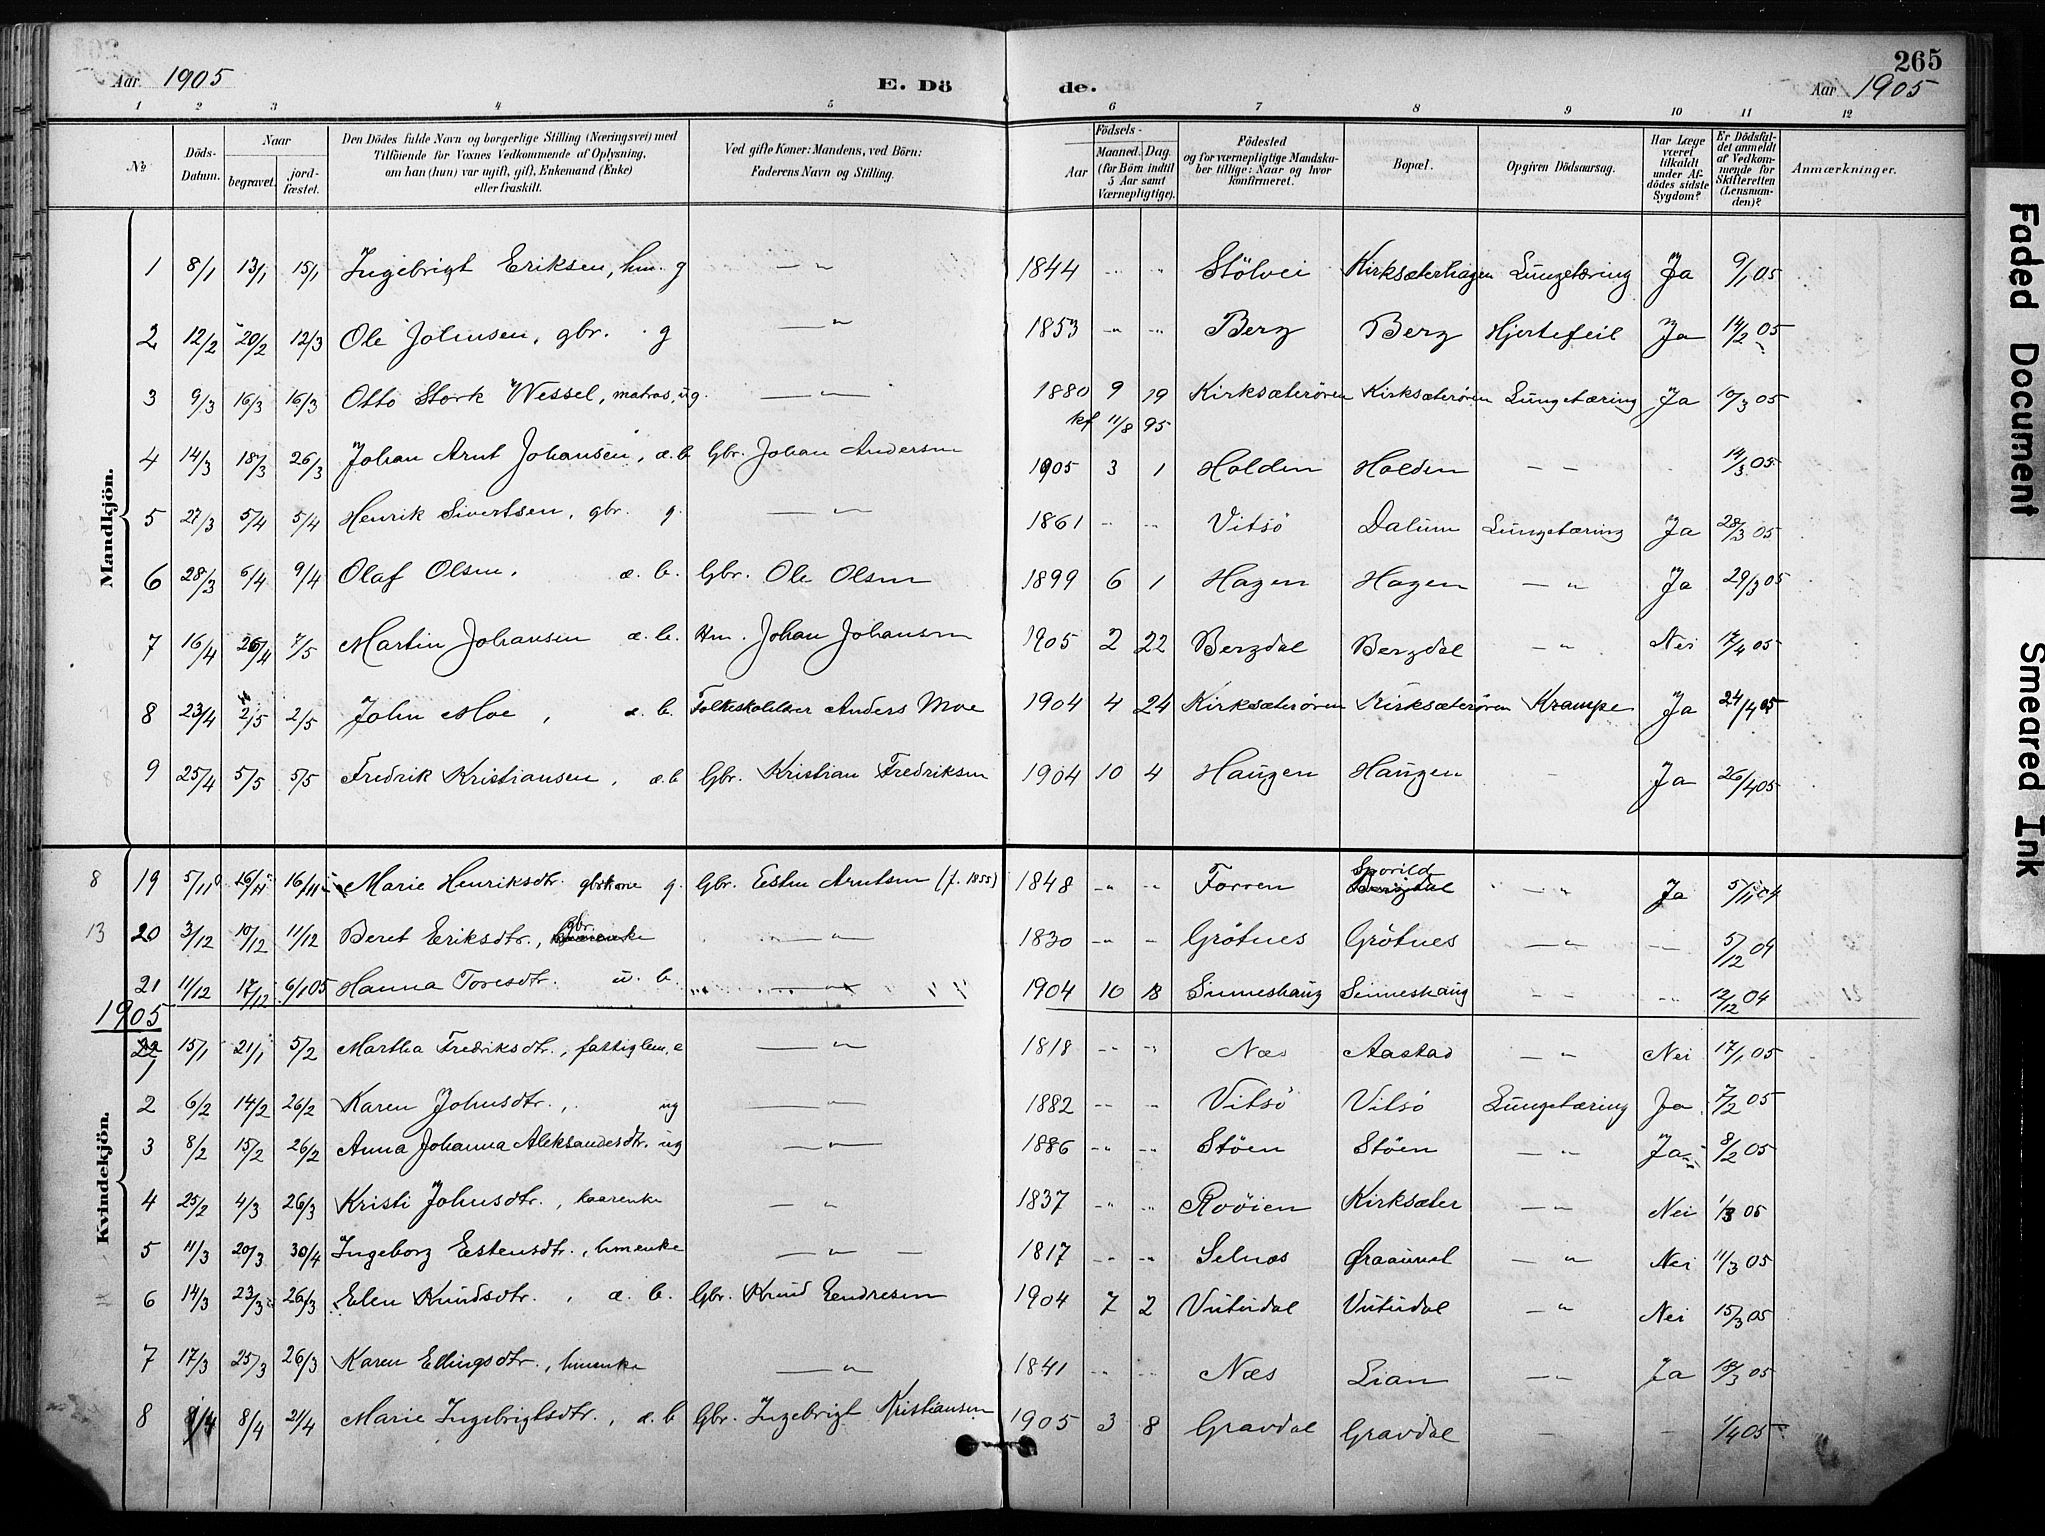 265
Aar. 1905 E. Dö de. Aar 1905
1 2 3 4 5 6 7 8 9 10 11 12
No Döds-Datum. Naar begravet. jord-fæstet. Den Dödes fulde Navn og borgerlige Stilling (Næringsvei) med Tilföiende for Voxnes Vedkommende af Oplysning, om han (hun) var ugift, gift, Enkemand (Enke) eller fraskilt. Ved gifte Koner: Mandens, ved Börn: Faderens Navn og Stilling. Födsels- Aar Maaned. Dag. (for Börn indtil 5 Aar samt Værnepligtige). Födested og for værnepligtige Mandska-ber tillige: Naar og hvor konfirmeret. Bopæl. Opgiven Dödsaarsag. Har Læge været tilkaldt under Af-dödes sidste Sygdom? Er Dödsfal-det anmeldt af Vedkom-mende for Skifteretten (Lensman-den)? Anmærkninger.
Mandkjön.
1 8/1 13/1 15/1 Ingebrigt Eriksen, hm. g — " 1844 " " Stölvei Kirksæterhagen Lungetæring Ja 9/1 05
2 12/2 20/2 12/3 Ole Johnsen, gbr. g — " 1853 " " Berg Berg Hjertefeil Ja 14/2 05
3 9/3 16/3 16/3 Otto Stork Wessel, matros, ug. — " 1880 9 19 Kirksæterören Kirksæterören Lungetæring Ja 10/3 05
kf 11/8 95
4 14/3 18/3 26/3 Johan Arnt Johansen, æ. b Gbr. Johan Andersen 1905 3 1 Holden Holden — — 14/3 05
5 27/3 5/4 5/4 Henrik Sivertsen, gbr. g. — " 1861 " " Vitsö Dalum Lungetæring Ja 28/3 05
6 28/3 6/4 9/4 Olaf Olsen, æ. b. Gbr. Ole Olsen 1899 6 1 Hagen Hagen — " Ja 29/3 05
7 16/4 26/4 7/5 Martin Johansen æ. b. Hm. Johan Johansen 1905 2 22 Bergdal Bergdal — " Nei 17/4 05
8 23/4 2/5 2/5 John Moe, æ. b. Anders Moe 1904 4 24 Kirksæterören Kirksæterören Krampe Ja 24/4 05
9 25/4 5/5 5/5 Fredrik Kristiansen, æ. b Gbr. Kristian Fredriksen 1904 10 4 Haugen Haugen - Ja 26/4 05
Kvindekjön.
8 19 5/11 16/11 Marie Henriksdtr. gbrkone g. Gbr. Esten Arntsen (f. 1855) 1848 " " Forren Sporild " — " Ja 5/11 04
13 20 3/12 10/12 11/12 Beret Eriksdtr., gbr. — " 1830 " " Grötnes Grötnes — " — 5/12 04
21 11/12 17/12 6/1 05 Hanna Toresdtr. u. b. — " 1904 10 18 Sinneshaug Sinneshaug — " " 12/12 04
1905
22
1 15/1 21/1 5/2 Martha Fredriksdtr., fattiglem, e — " 1818 " " Næs Aastad — " Nei 17/1 05
2 6/2 14/2 26/2 Karen Johnsdtr., ug — " 1882 " " Vitsö Vitsö Lungetæring Ja 7/2 05
3 8/2 15/2 26/2 Anna Johanna Aleksandersdtr. ug — " 1886 " " Stöen Stöen — " Ja 8/2 05
4 25/2 4/3 26/3 Kristi Johnsdtr., kaarenke — " 1837 " " Rovöien Kirksæter — " Nei 1/3 05
5 11/3 20/3 30/4 Ingeborg Estensdtr., hmenke — " 1817 " " Selnæs — " Nei 11/3 05
6 14/3 23/3 26/3 Elen Knudsdtr., æ. b. Gbr. Knud Eendresen 1904 7 2 Vutudal Vutudal — " Nei 15/3 05
7 17/3 25/3 26/3 Karen Ellingsdtr., hmenke — " 1841 " " Næs Lian — " Ja 18/3 05
8 1/4 8/4 21/4 Marie Ingebrigtsdtr., æ. b Gbr. Ingebrigt Kristiansen 1905 3 8 Gravdal Gravdal - - 1/4 05
Faded Document
Smeared Ink